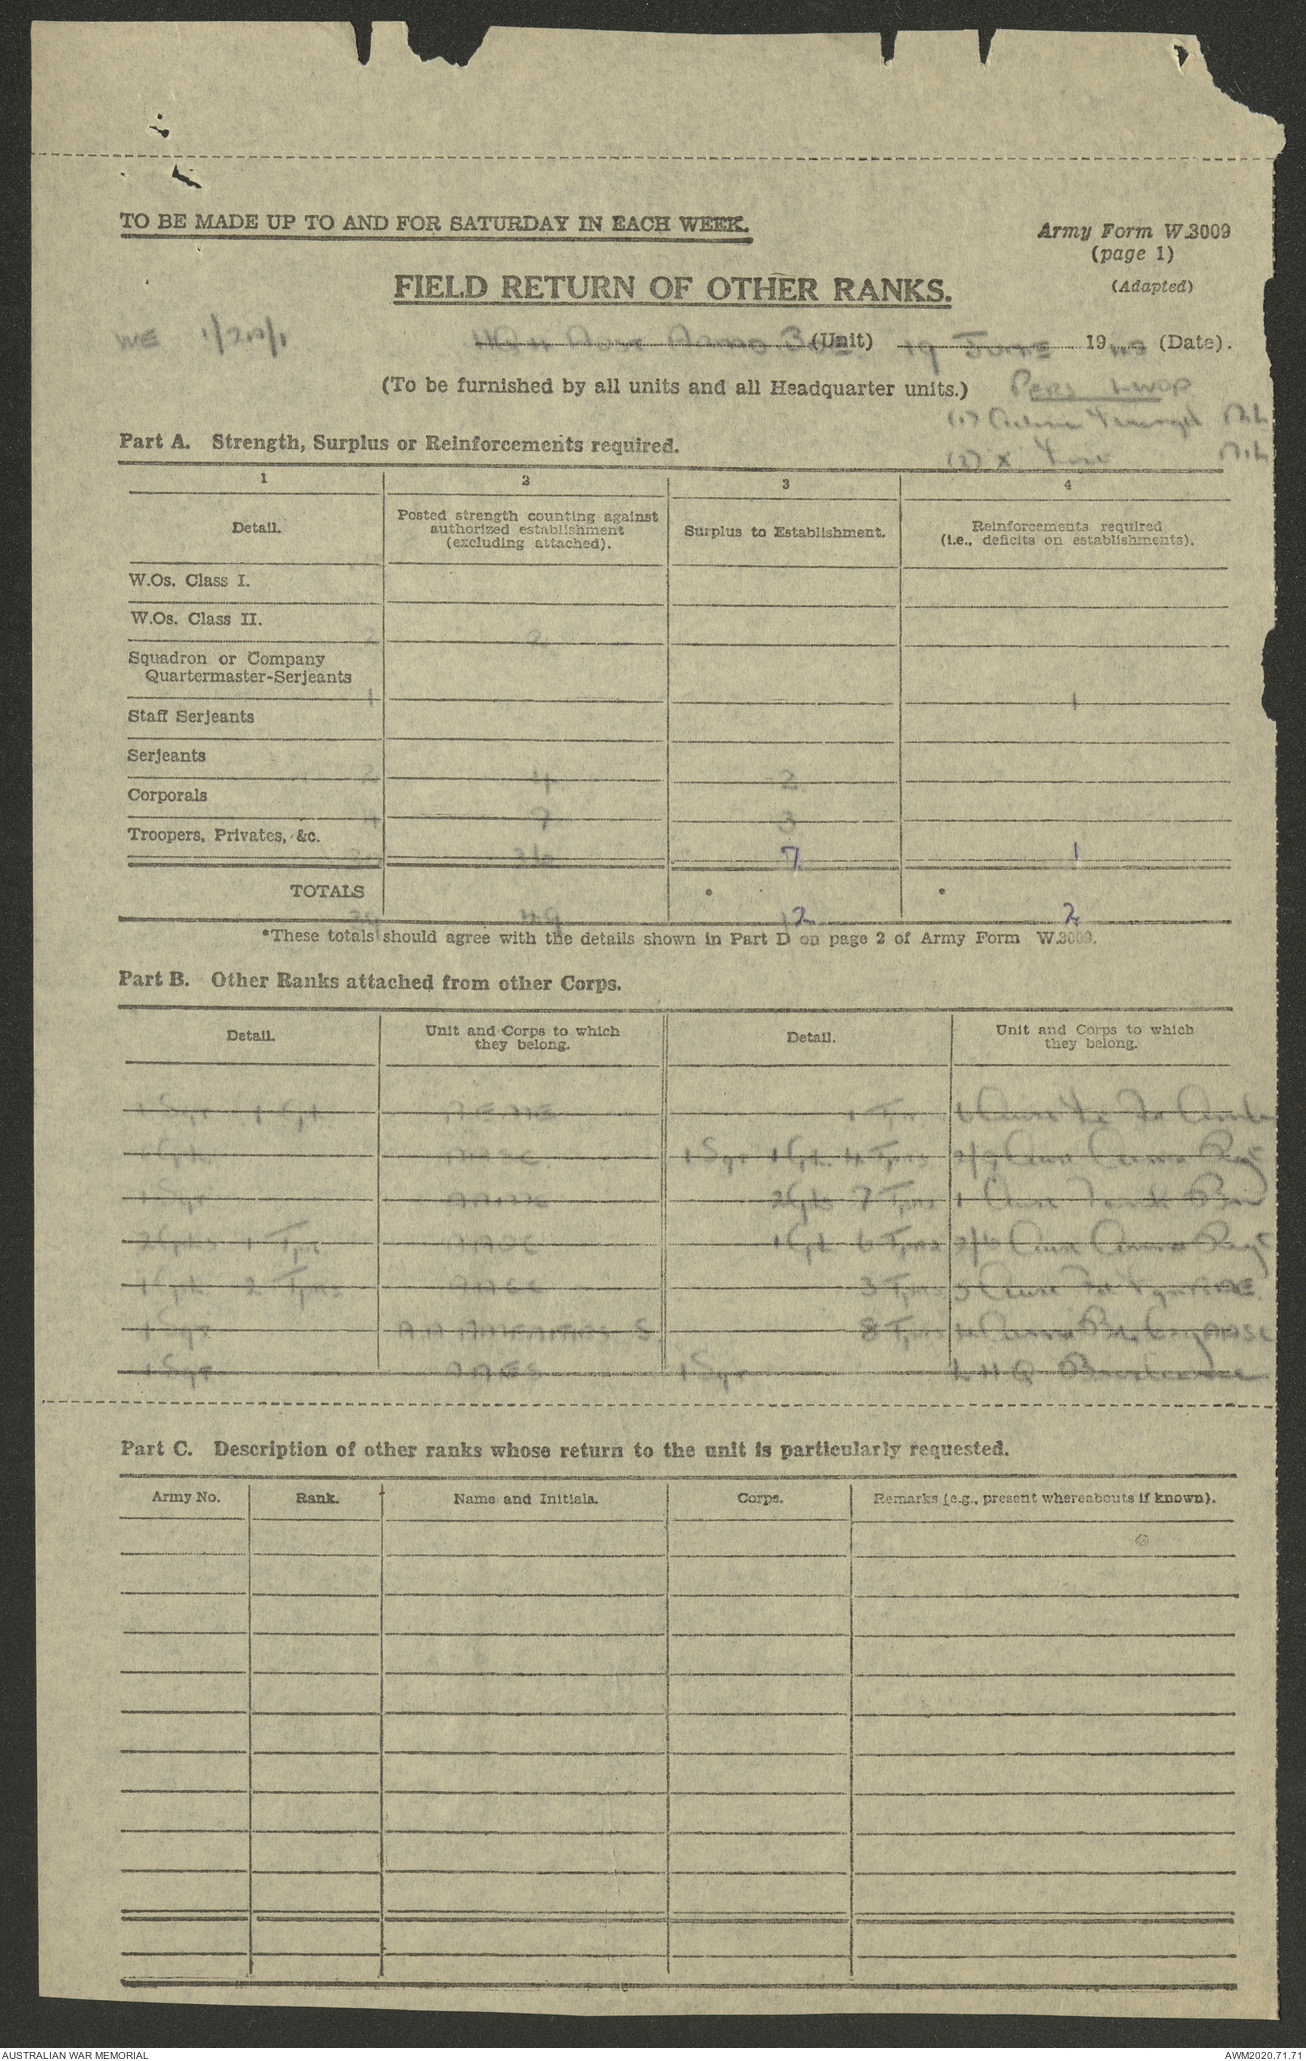 TO BE MADE UP TO AND FOR SATURDAY IN EACH WEEK.
Army Form W.3009
(page 1)
(Adapted)
FIELD RETURN OF OTHER RANKS.
WE 1/2 /1 HQ 4 Aust Armd BDE. (Unit) 19 June 1943 (Date).
(To be furnished by all units and all Headquarter units.)
Pers LWOP
(1) Nil
(2) X Nil
Part A. Strength, Surplus or Reinforcements required.
1 2 3 4
Detail. Posted strength counting against authorized establishment (excluding attached). Surplus to Establishment. Reinforcements required (i.e., deficits on establishments).
W.Os. Class I.
W.Os. Class II. 2 2
Squadron or Company
Quartermaster-Serjeants 1 1
Staff Serjeants
Serjeants 2 4 2
Corporals 4 7 3
Troopers, Privates, &c. 30 36 7 1
TOTALS 39 49 12 2
*These totals should agree with the details shown in Part D on page 2 of Army Form W.3009.
Part B. Other Ranks attached from other Corps.
Detail. Unit and Corps to which they belong. Detail. Unit and Corps to which they belong.
1 Sgt 1 Cpl AEME 1 Tpr Aust
1 Cpl AASC 1 Sgt 1 Cpl 4 Tprs 2/9 Aust Armd Regt
1 Sgt 2 Cpls 7 Tprs 1 Aust Tank Bn
2 Cpls 1 Tpr AAOC 1 Cpl 6 Tprs 2/6 Aust Armd Regt
1 Cpl 2 Tprs AACC 3 Tprs Aust Fd RAE
1 Sgt 8 Tprs Armd Bde Coy AASC
1 Sgt AAES 1 Sgt LHQ
Part C. Description of other ranks whose return to the unit is particularly requested.
Army No. Rank. Name and Initials. Corps. Remarks (e.g., present whereabouts if known).
AUSTRALIAN WAR MEMORIAL
AWM2020.71.71